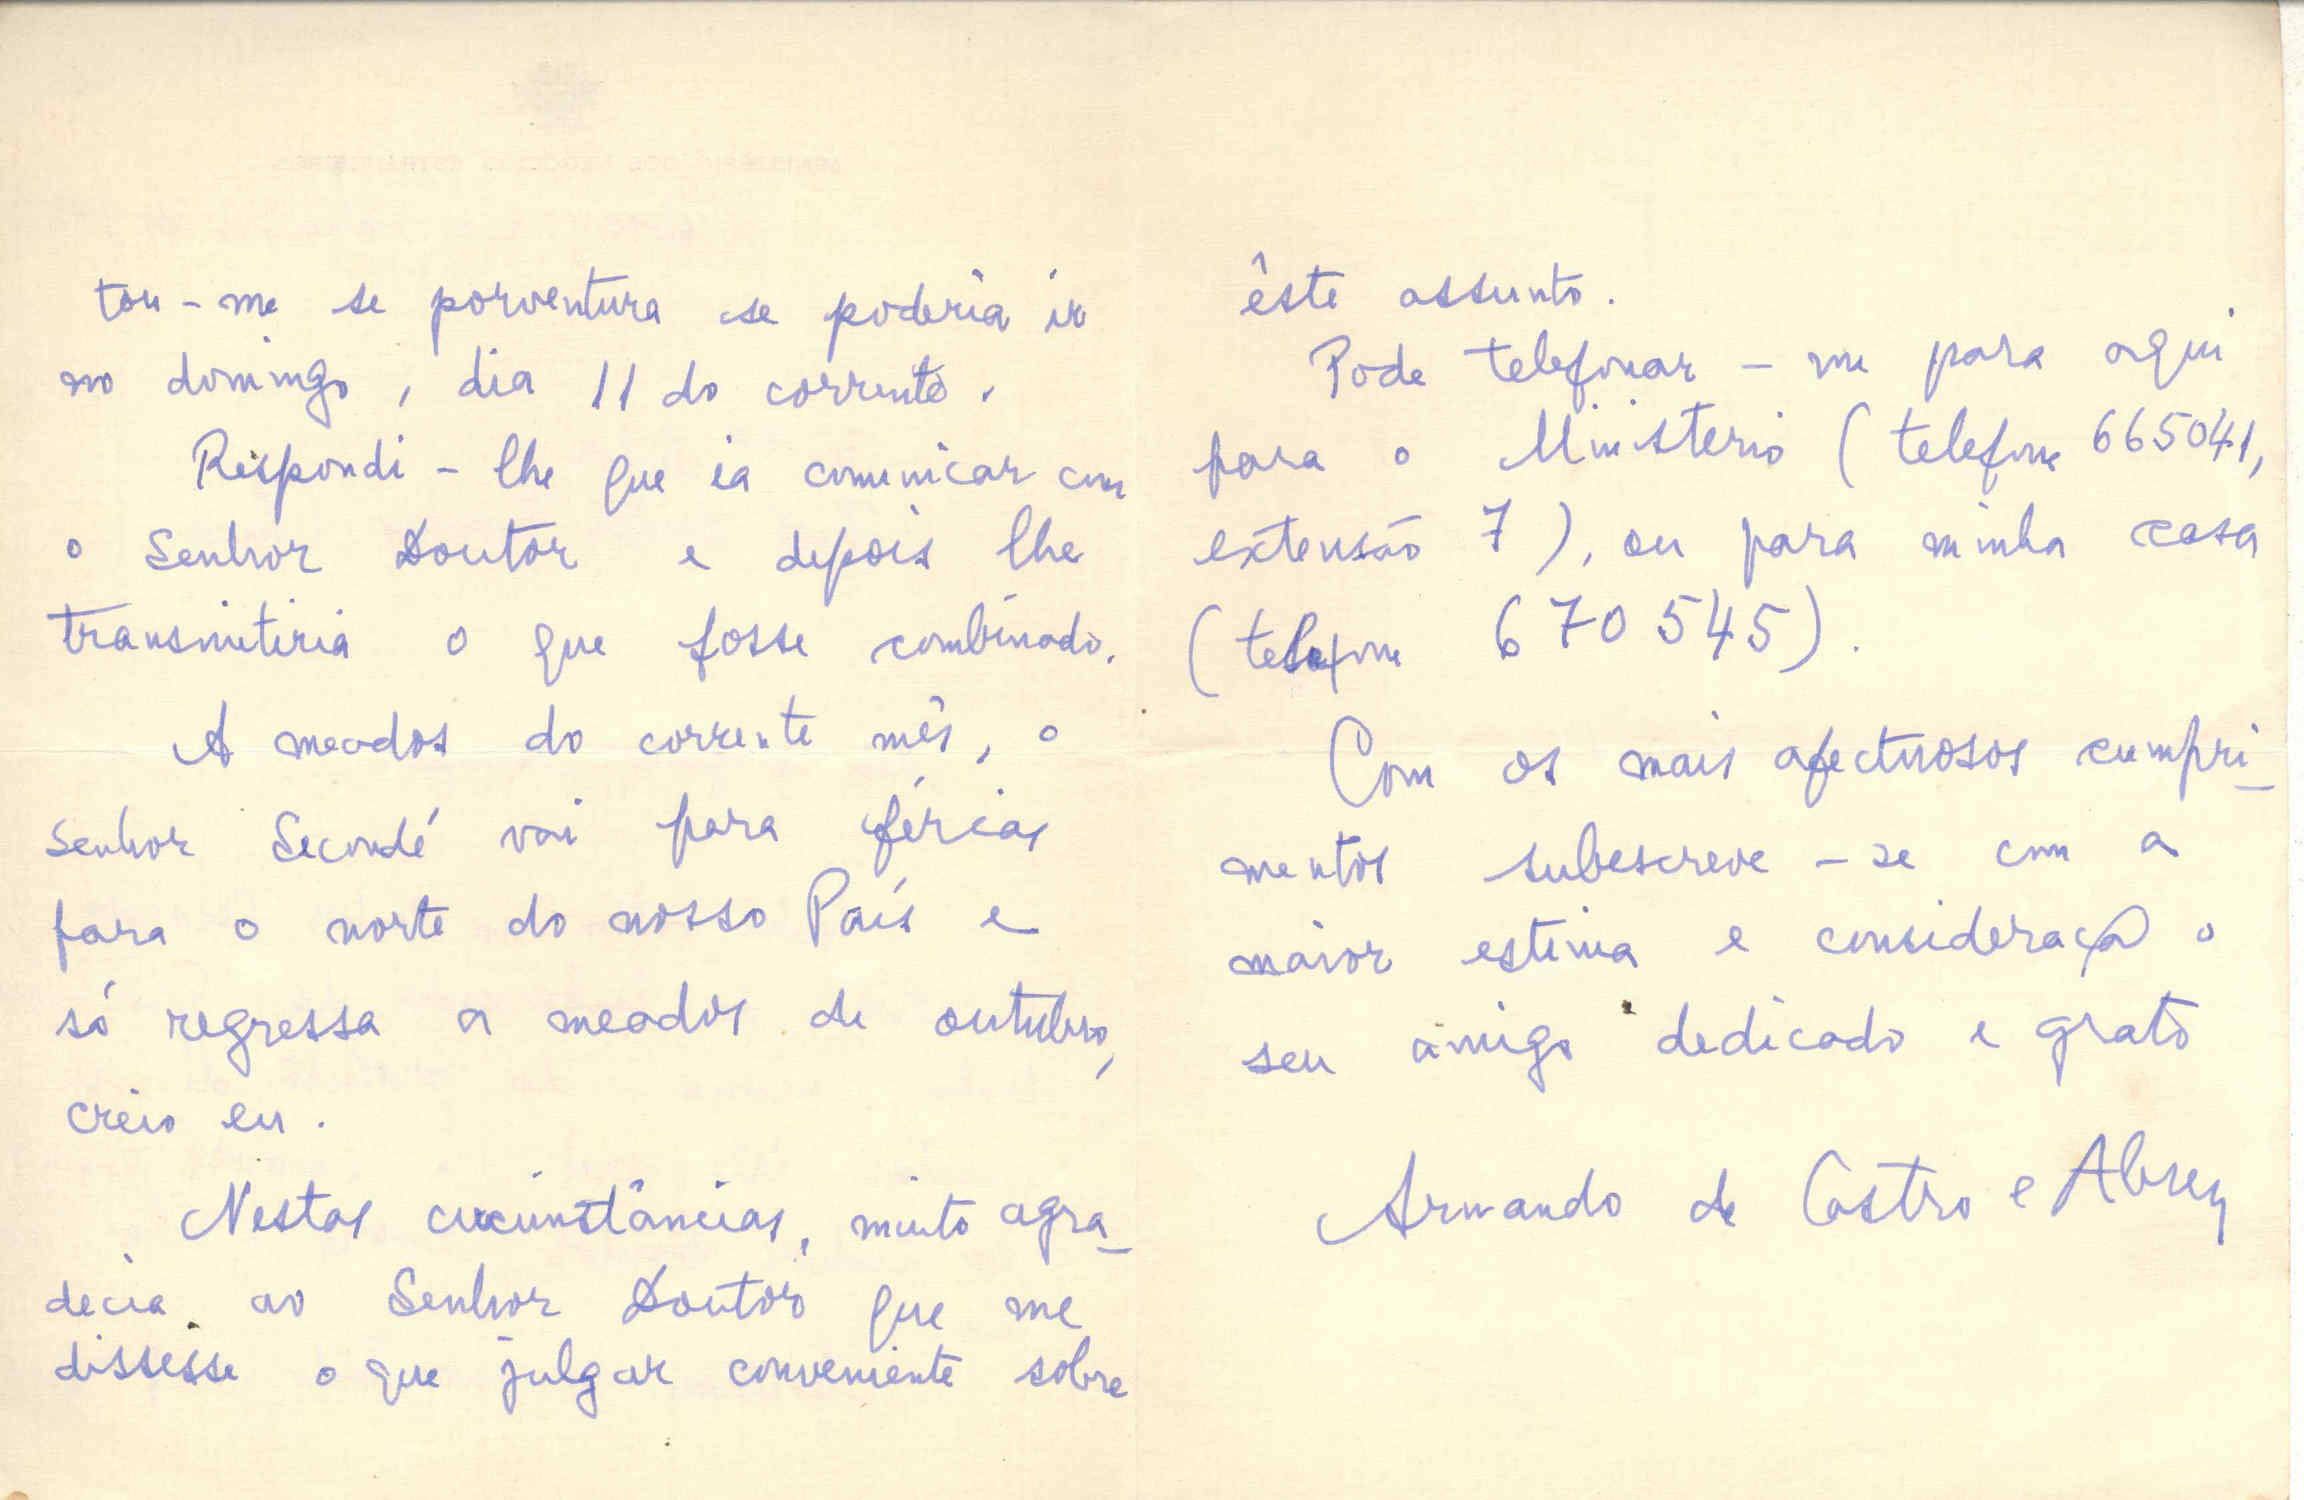 tou-me se porventura se poderia ir
no domingo, dia 11 do corrente.
Respondi-lhe que ia comunicar com
o Senhor Doutor e depois lhe
transmitiria o que fosse combinado.
A meados do corrente mês, o
senhor Secondé vai para férias
para o norte do nosso País e
só regressa a meados de outubro,
creio eu.
Nestas circunstâncias, muito agra-
decia ao Senhor Doutor que me
dissesse o que julgar conveniente sobre
êste assunto.
Pode telefonar-me para aqui
para o Ministerio (telefone 665041,
extensão 7), ou para minha casa
(telefone 670545).
Com os mais afectuosos cumpri-
mentos subescreve-se com a
maior estima e consideração o
seu amigo dedicado e grato
Armando de Castro e Abreu